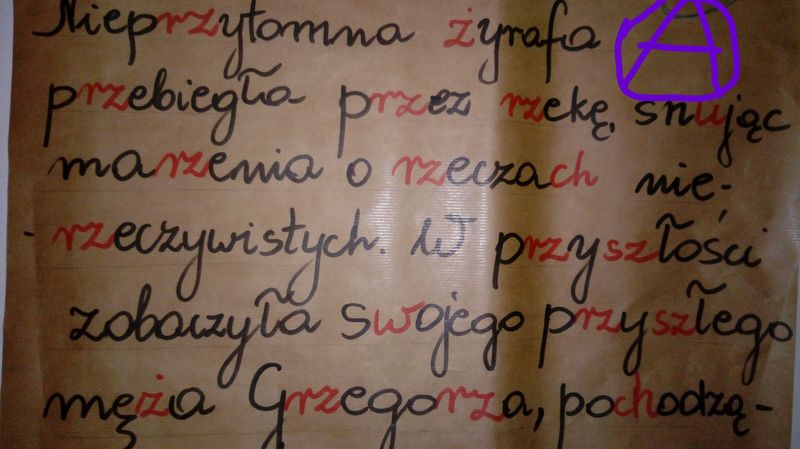 Nieprzytomna żyrafa A
przebiegła przez rzekę, snując
marzenia o rzeczach nie-
-rzeczywistych. W przyszłości
zobaczyła swojego przyszłego
męża Grzegorza, pochodzą-